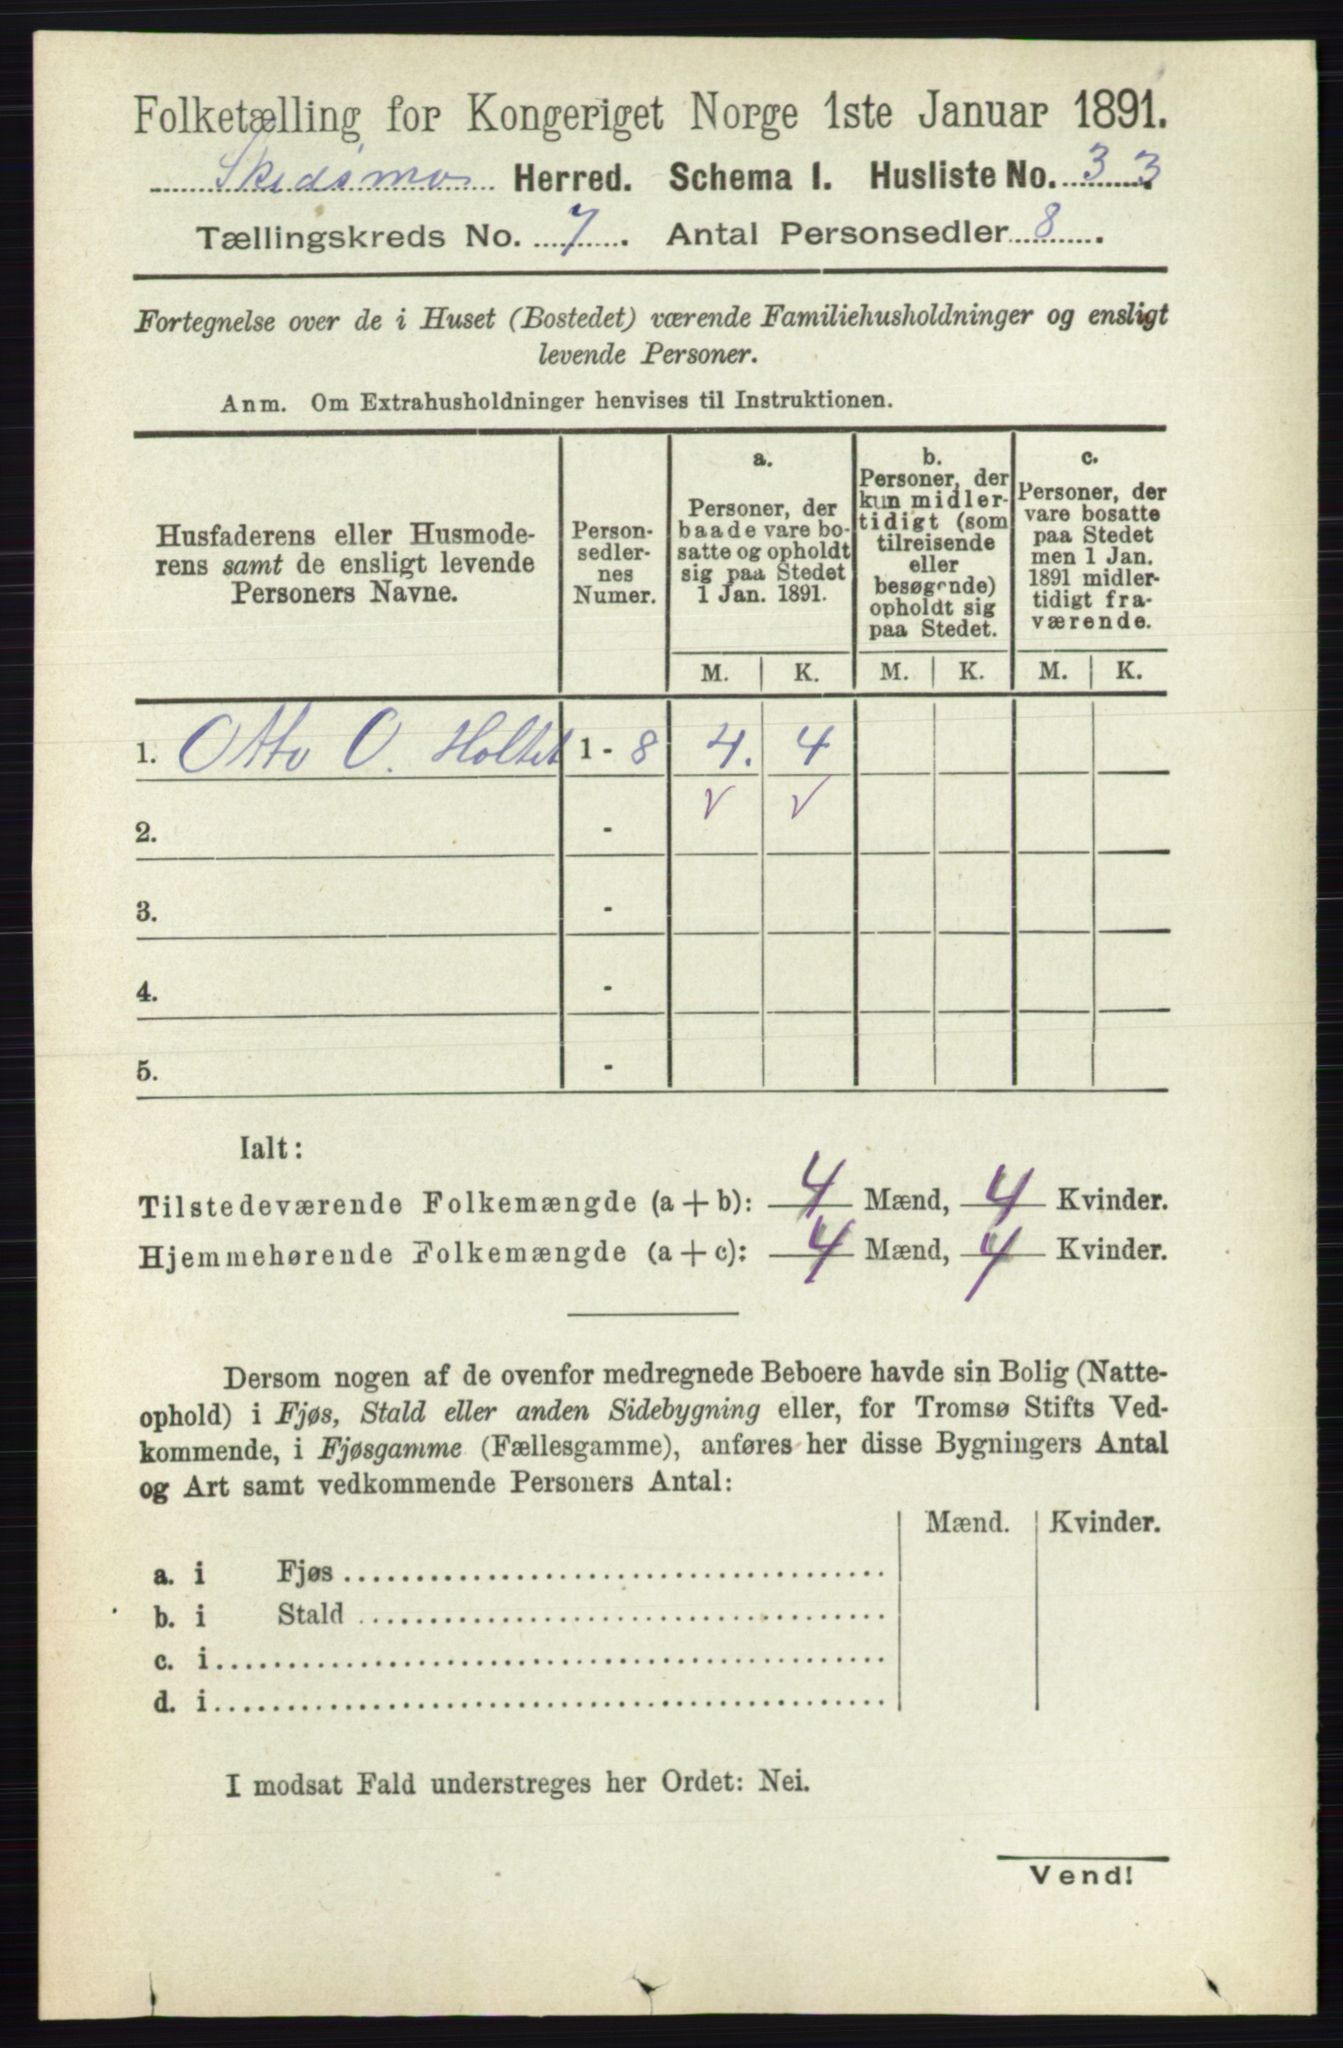 Folketælling for Kongeriget Norge 1ste Januar 1891.
Skedsmo Herred. Schema I. Husliste No. 33
Tællingskreds No. 7. Antal Personsedler 8.
Fortegnelse over de i Huset (Bostedet) værende Familiehusholdninger og ensligt
levende Personer.
Anm. Om Extrahusholdninger henvises til Instruktionen.
Husfaderens eller Husmode-
rens samt de ensligt levende
Personers Navne.
Person-
sedler-
nes
Numer.
a.
Personer, der
baade vare bo-
satte og opholdt
sig paa Stedet
1 Jan. 1891.
b.
Personer, der
kun midler-
tidigt (som
tilreisende
eller
besøgende)
opholdt sig
paa Stedet.
c.
Personer, der
vare bosatte
paa Stedet
men 1 Jan.
1891 midler-
tidigt fra-
værende.
M. K. M. K. M. K.
1. Otto O. Holtet 1 - 8 4. 4
2. - √ √
3. -
4. -
5. -
Ialt:
Tilstedeværende Folkemængde (a + b): 4 Mænd, 4 Kvinder.
Hjemmehørende Folkemængde (a + c): 4 Mænd, 4 Kvinder.
Dersom nogen af de ovenfor medregnede Beboere havde sin Bolig (Natte-
ophold) i Fjøs, Stald eller anden Sidebygning eller, for Tromsø Stifts Ved-
kommende, i Fjøsgamme (Fællesgamme), anføres her disse Bygningers Antal
og Art samt vedkommende Personers Antal:
Mænd. Kvinder.
a. i Fjøs
b. i Stald
c. i
d. i
I modsat Fald understreges her Ordet: Nei.
Vend!